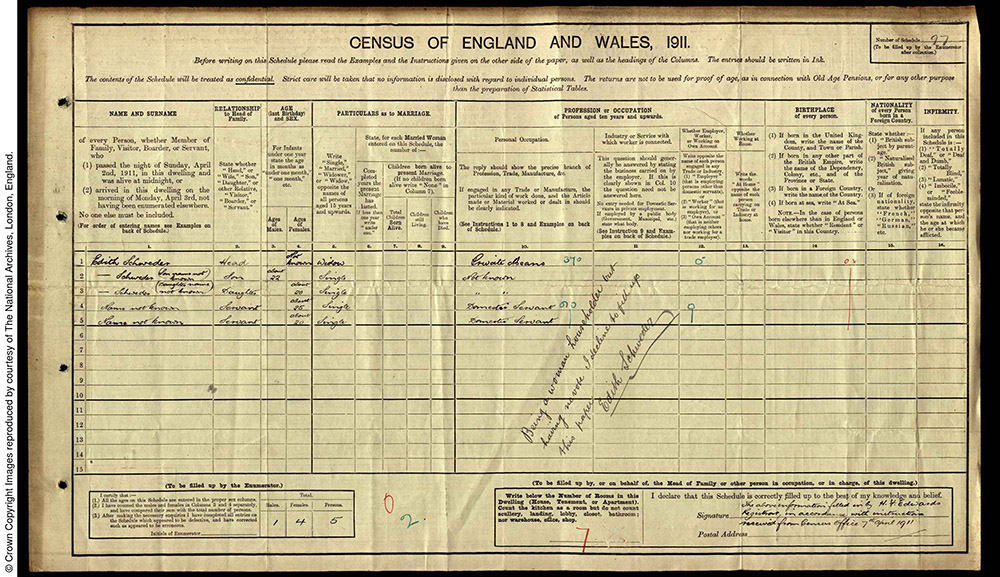 © Crown Copyright Images reproduced by courtesy of The National Archives, London, England.
CENSUS OF ENGLAND AND WALES, 1911.
Number of Schedule 97
(To be filled up by the Enumerator
after collection.)
Before writing on this Schedule please read the Examples and the Instructions given on the other side of the paper, as well as the headings of the Columns. The entries should be written in Ink.
The contents of the Schedule will be treated as confidential. Strict care will be taken that no information is disclosed with regard to individual persons. The returns are not to be used for proof of age, as in connection with Old Age Pensions, or for any other purpose
than the preparation of Statistical Tables.
NAME AND SURNAME
of every Person, whether Member of
Family, Visitor, Boarder, or Servant,
who
(1) passed the night of Sunday, April
2nd, 1911, in this dwelling and
was alive at midnight, or
(2) arrived in this dwelling on the
morning of Monday, April 3rd, not
having been enumerated elsewhere.
No one else must be included.
(For order of entering names see Examples on
back of Schedule.)
RELATIONSHIP
to Head of
Family.
State whether
"Head," or
"Wife," "Son,"
"Daughter," or
other Relative,
"Visitor,"
"Boarder," or
"Servant."
AGE
(last Birthday)
and SEX.
For Infants
under one year
state the age
in months as
"under one month,"
"one month,"
etc.
Ages of Males.
Ages of Females.
PARTICULARS as to MARRIAGE.
Write
"Single,"
"Married,"
"Widower,"
or "Widow,"
opposite the
names of
all persons
aged 15 years
and upwards.
State, for each Married Woman
entered on this Schedule, the
number of:—
Completed
years the
present
Marriage
has lasted.
If less than
one year
write
"under one."
Children born alive to
present Marriage.
(If no children born
alive write "None" in
Column 7).
Total
Children
Born
Alive.
Children
still
Living.
Children
who have
Died.
PROFESSION or OCCUPATION
of Persons aged ten years and upwards.
Personal Occupation.
The reply should show the precise branch of
Profession, Trade, Manufacture, &c.
If engaged in any Trade or Manufacture, the
particular kind of work done, and the Article
made or Material worked or dealt in should
be clearly indicated.
(See Instructions 1 to 8 and Examples on back
of Schedule.)
Industry or Service with
which worker is connected.
This question should generally
be answered by stating
the business carried on
by the employer. If this is
clearly shown in Col. 10
the question need not be
answered here.
No entry needed for Domestic Servants
in private employment.
If employed by a public body
(Government, Municipal, etc.)
state what body.
(See Instruction 9 and Examples
on back of Schedule.)
Whether Employer,
Worker, or
Working on
Own Account.
Whether
Working at
Home.
BIRTHPLACE
of every person.
(1) If born in the United Kingdom,
write the name of the
County, and Town or Parish.
(2) If born in any other part of
the British Empire, write
the name of the Dependency,
Colony, etc., and of the
Province or State.
(3) If born in a Foreign Country,
write the name of the Country.
(4) If born at sea, write "At Sea."
NOTE.—In the case of persons
born elsewhere than in England or
Wales, state whether "Resident" or
"Visitor" in this Country.
NATIONALITY
of every Person
born in a
Foreign Country.
INFIRMITY.
1. 2. 3. 4. 5. 6. 7. 8. 9. 10. 11. 12. 13. 14. 15. 16.
1 Edith Schweder Head Not known Widow Private Means 370 0
2 — Schweder (Son name not known) Son about 22 Single Not known
3 — Schweder (Daughter name not known) Daughter about 20 Single " "
4 Name not known Servant about 25 Single Domestic Servant
5 Name not known Servant about 20 Single Domestic Servant
6
7
8
9
10
11
12
13
14
15
Being a woman householder but
having no vote I decline to fill up
this paper
Edith Schweder
(To be filled up by the Enumerator.)
I certify that:—
(1.) All the ages on this Schedule are entered in the proper sex columns.
(2.) I have counted the males and females in Columns 3 and 4 separately,
and have compared their sum with the total number of persons.
(3.) After making the necessary enquiries I have completed all entries on
the Schedule which appeared to be defective, and have corrected
such as appeared to be erroneous.
Initials of Enumerator
Total.
Males. Females. Persons.
1 4 5
0
2.
(To be filled up by, or on behalf of, the Head of Family or other person in occupation, or in charge, of this dwelling.)
Write below the Number of Rooms in this
Dwelling (House, Tenement, or Apartment).
Count the kitchen as a room but do not count
scullery, landing, lobby, closet, bathroom;
nor warehouse, office, shop.
7
I declare that this Schedule is correctly filled up to the best of my knowledge and belief.
Signature
The above information filled in by H. F. Edwards
Registrar, in accordance with instructions
received from Census Office 7th April 1911
Postal Address